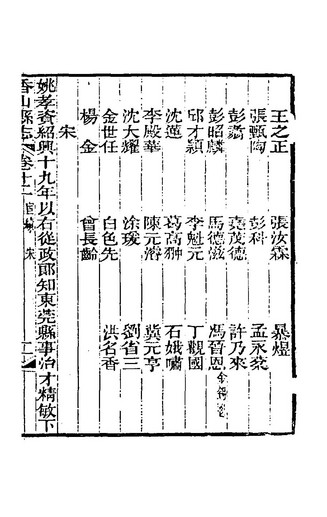 王之正 張汝霖 暴煜
張甄陶 彭科 孟永棻
彭翥 堯茂德 許乃來
彭昭麟 馬德滋 馮晉恩
邱才穎 李魁元 丁觀國
沈蓮 葛高翀 石娥嘯
李殿華 陳元濬 龔元亨
沈大耀 徐瑗 劉省三
金世任 白色先 洪名香
楊金 曾長齡
宋
姚孝資紹興十九年以右從政郎知東莞縣事治才精敏下
香山縣志 卷十二 宦績 宋